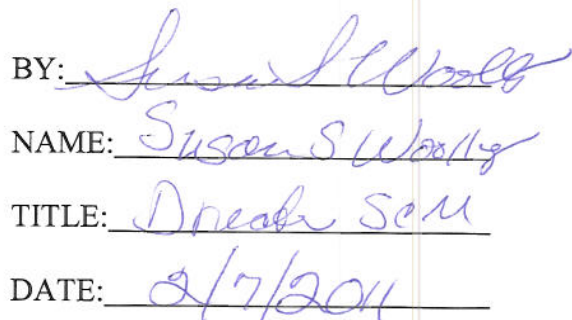 BY: Susan S Woolly
NAME: Susan S Woolly
TITLE: Director SCM
DATE: 2/7/2011